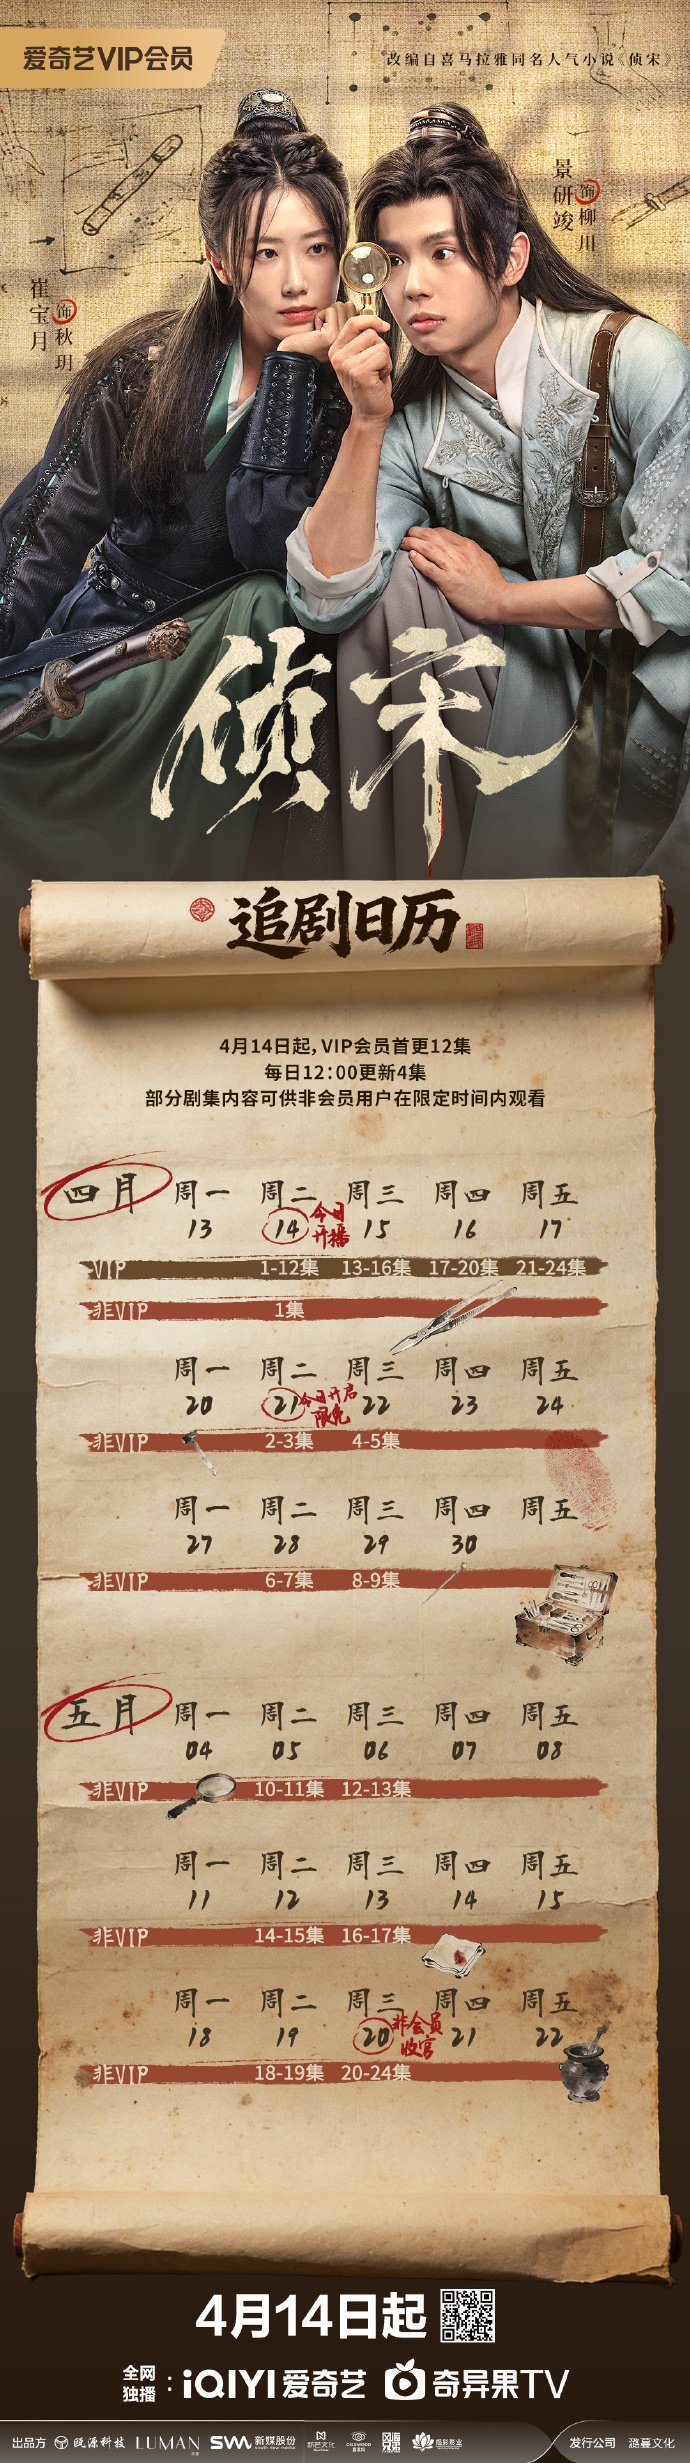 爱奇艺VIP会员
改编自喜马拉雅同名人气小说《侦宋》
景研竣
饰
柳川
崔宝月
饰
秋玥
侦宋
追剧日历
4月14日起，VIP会员首更12集
每日12:00更新4集
部分剧集内容可供非会员用户在限定时间内观看
四月 周一 周二 周三 周四 周五
13 14 今日开播 15 16 17
VIP 1-12集 13-16集 17-20集 21-24集
非VIP 1集
周一 周二 周三 周四 周五
20 21 今日开启限免 22 23 24
非VIP 2-3集 4-5集
周一 周二 周三 周四 周五
27 28 29 30
非VIP 6-7集 8-9集
五月 周一 周二 周三 周四 周五
04 05 06 07 08
非VIP 10-11集 12-13集
周一 周二 周三 周四 周五
11 12 13 14 15
非VIP 14-15集 16-17集
周一 周二 周三 周四 周五
18 19 20 非会员收官 21 22
非VIP 18-19集 20-24集
4月14日起
全网独播: iQIYI 爱奇艺 奇异果TV
出品方 瓯源科技 LUMAN SWM 新媒股份 新芒文化 炫彩影业 发行公司 潞蔓文化